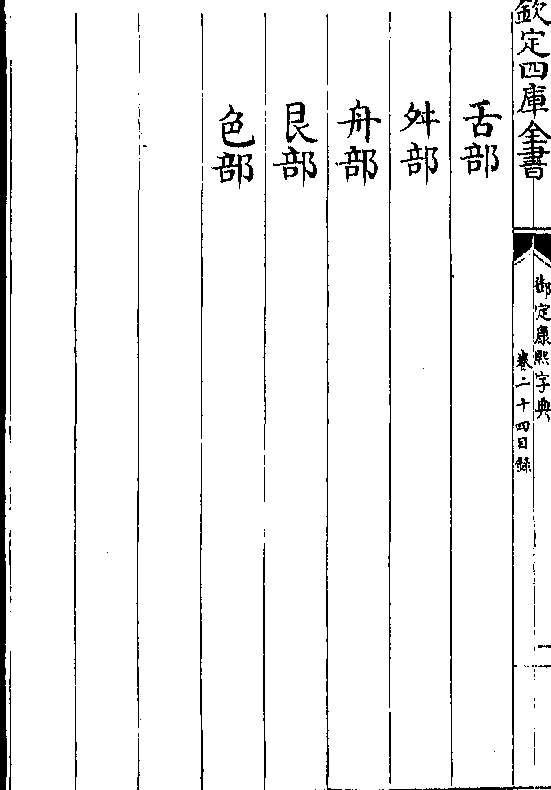 欽定四庫全書
御定康熙字典
卷二十四目錄
一
舌部
舛部
舟部
艮部
色部